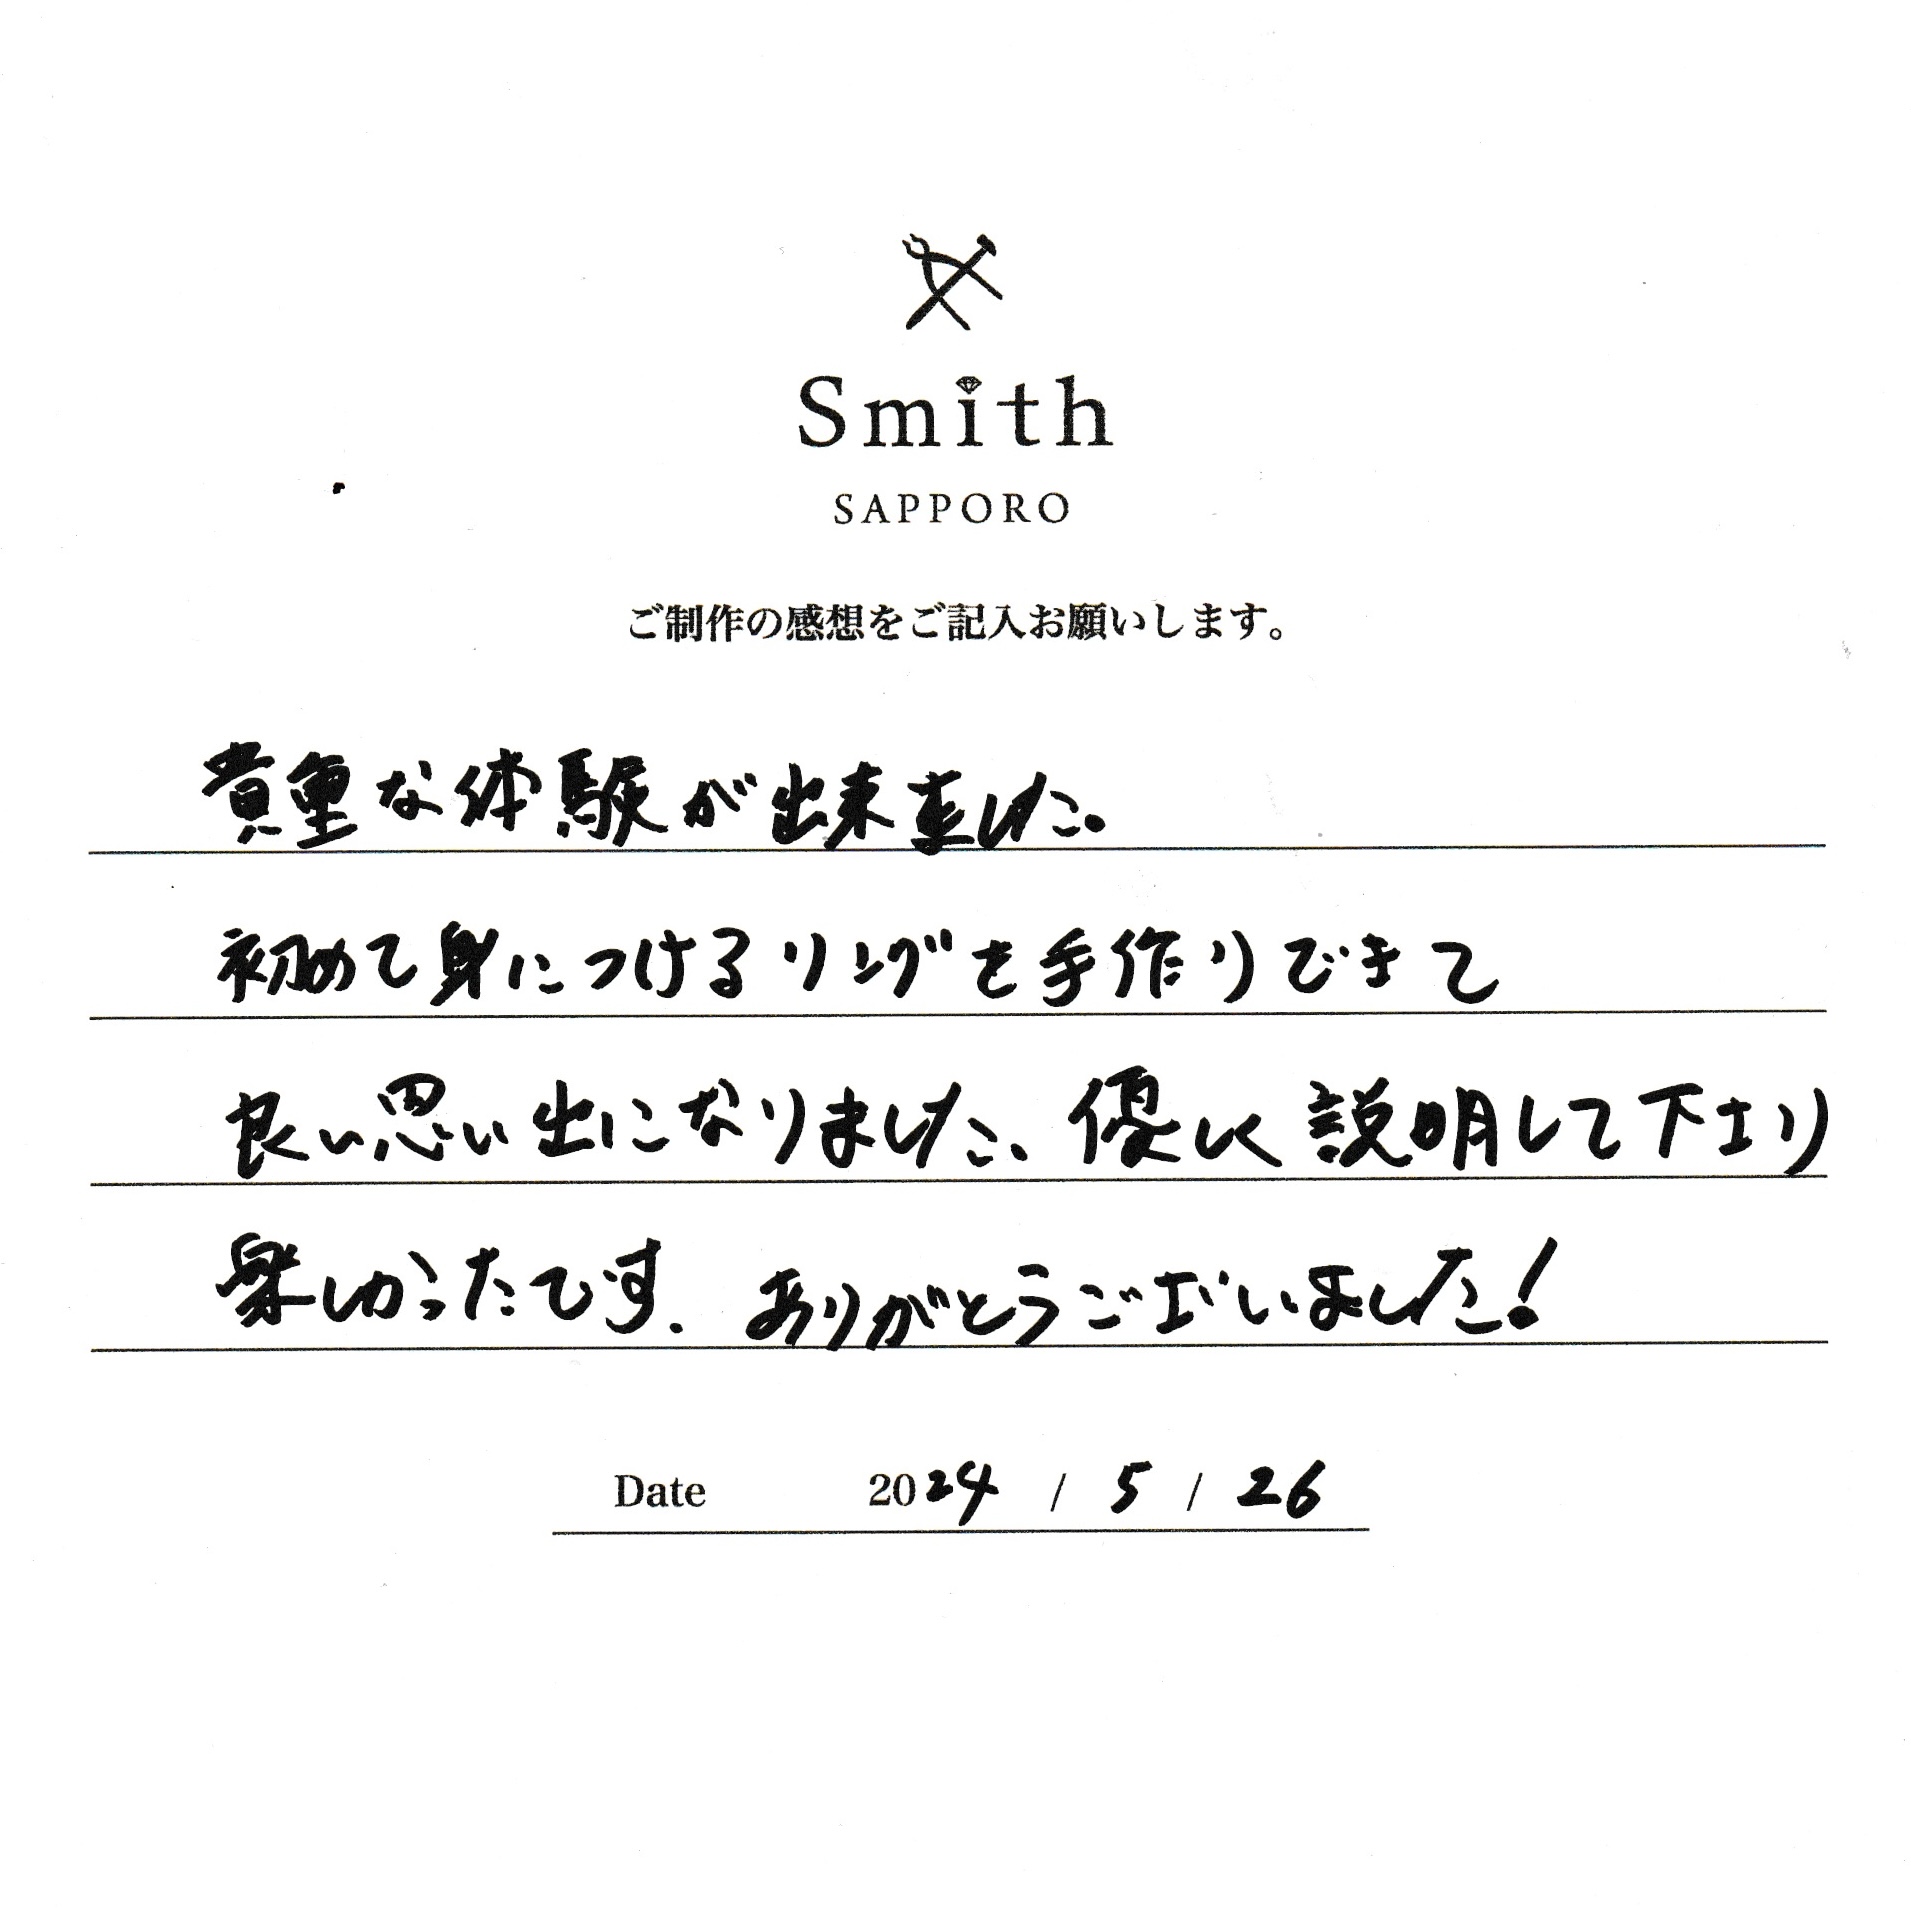 Smith
SAPPORO
ご制作の感想をご記入お願いします。
貴重な体験が出来ました。
初めて身につけるリングを手作りできて
良い思い出になりました、優しく説明して下さり
楽しかったです. ありがとうございました!
Date 2024 / 5 / 26